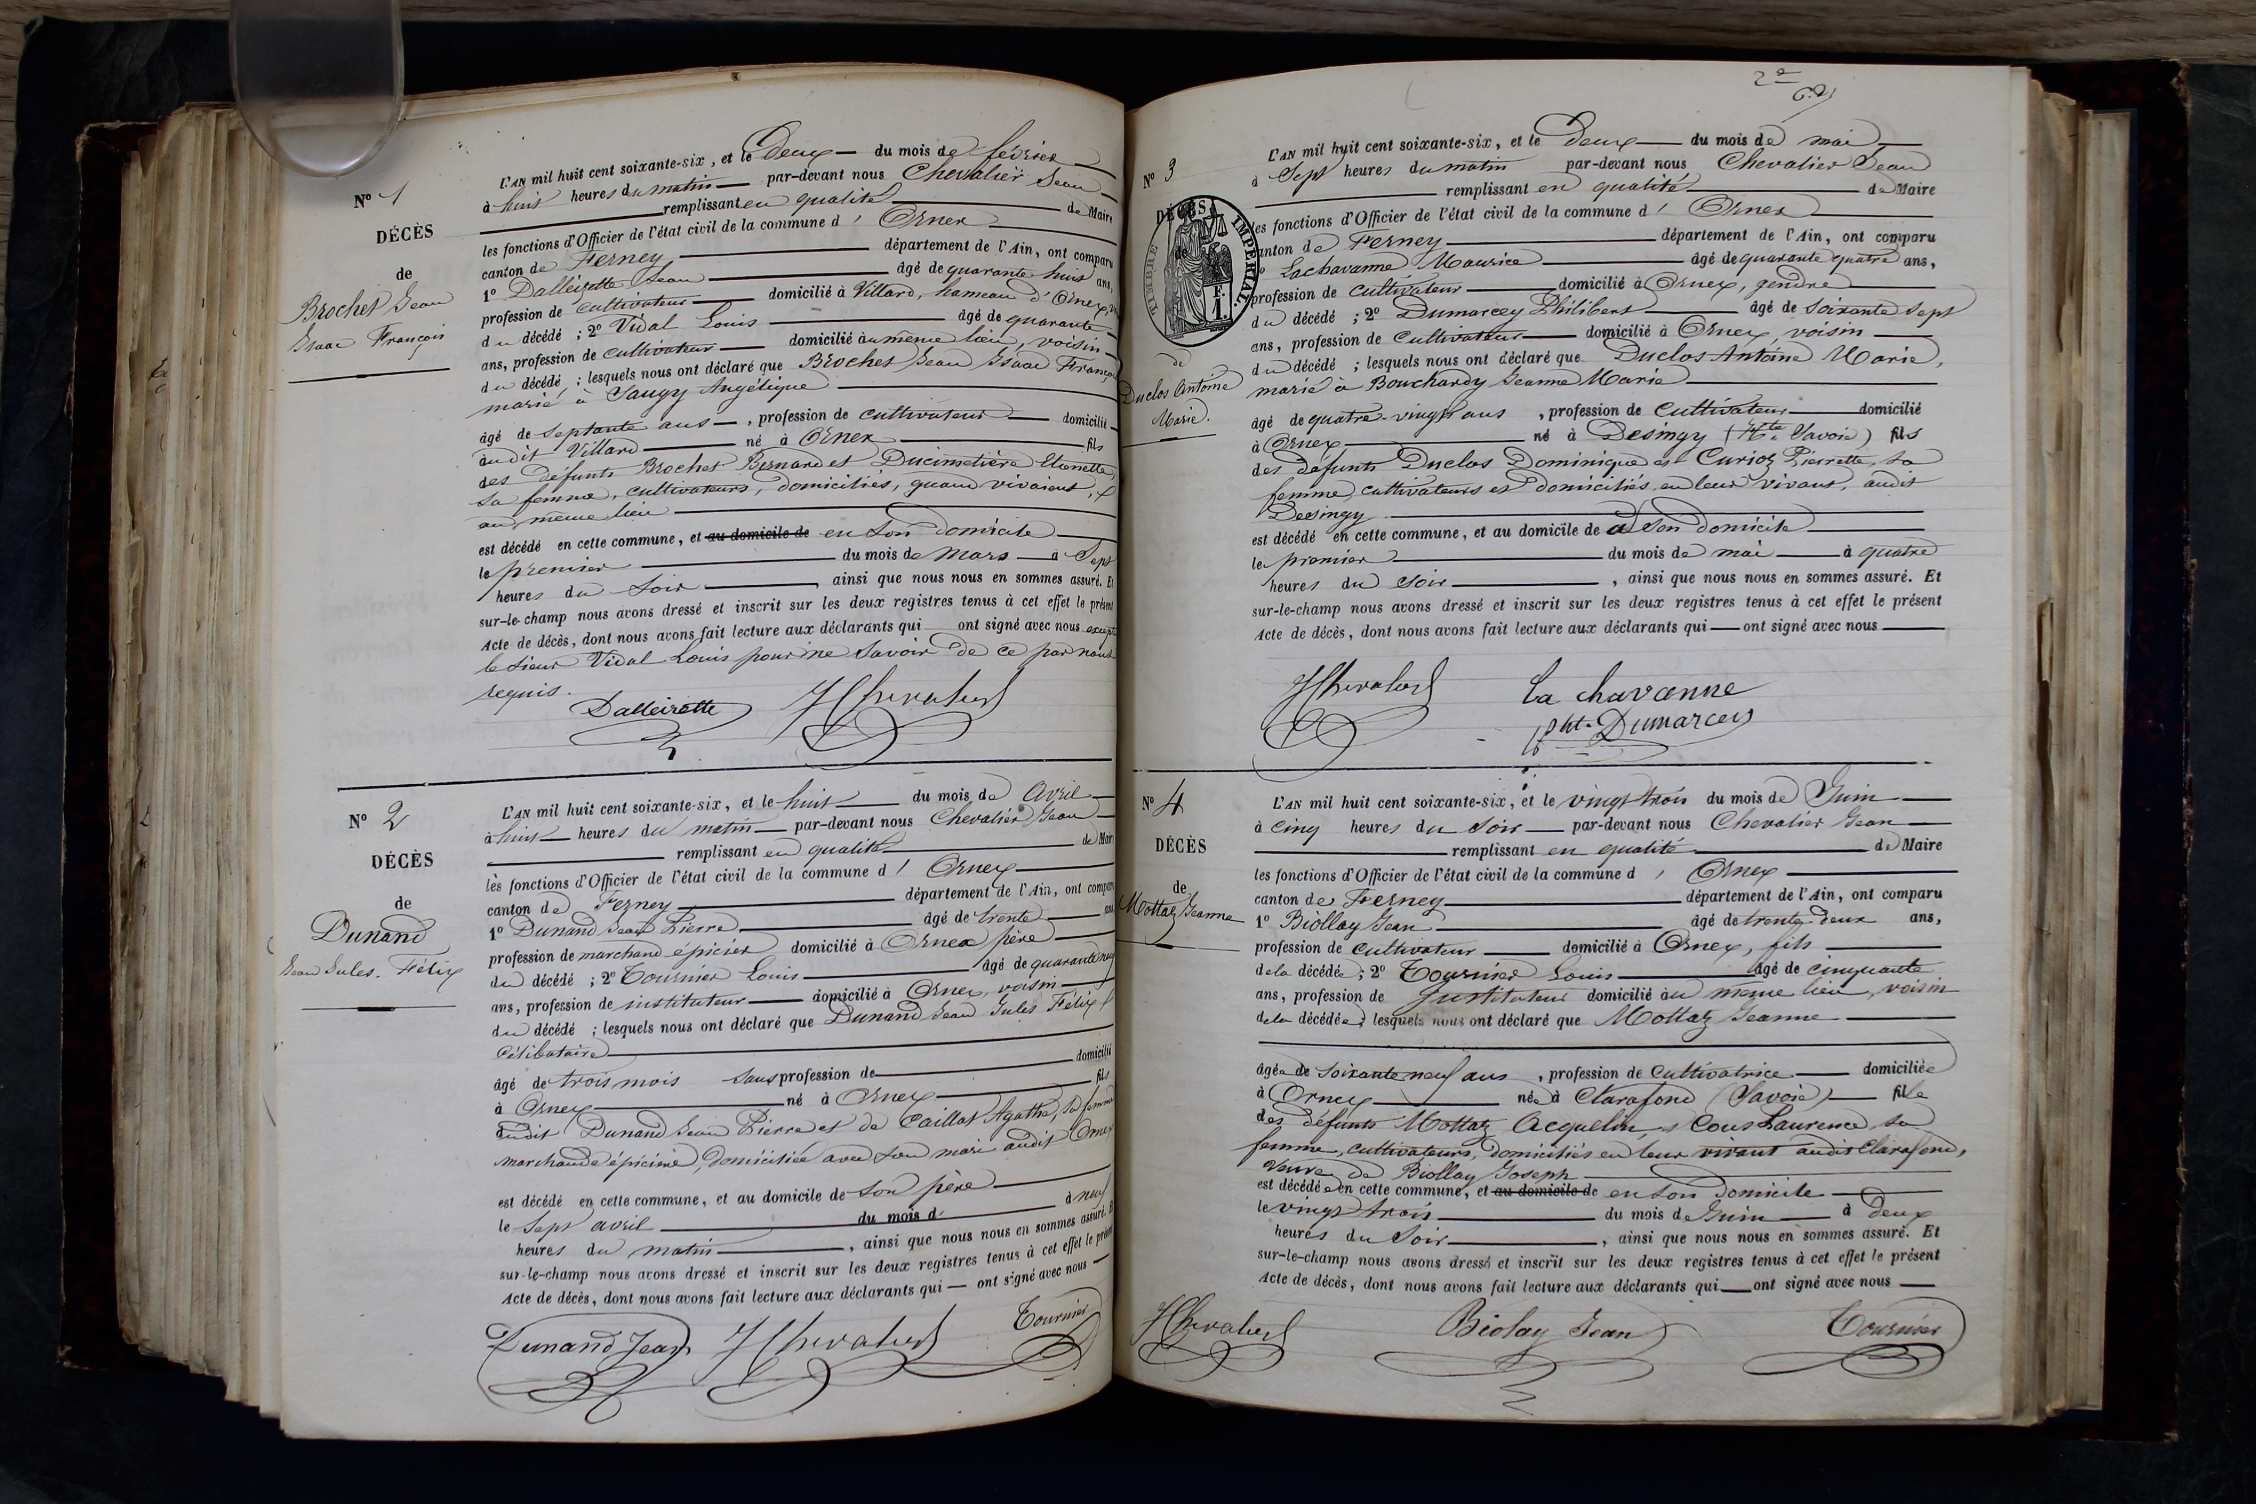 N° 1
DÉCÈS
de
Brochet Jean
Isaac François
L'AN mil huit cent soixante-six, et le Deux du mois de février
à huit heures du matin par-devant nous Chevalier Jean
remplissant en qualité de Maire
les fonctions d'Officier de l'état civil de la commune d' Ornex
canton de Ferney département de l'Ain, ont comparu
1° Dalleizette Jean âgé de quarante huit ans,
profession de cultivateur domicilié à Villard, hameau d'Ornex,
du décédé ; 2° Vidal Louis âgé de quarante
ans, profession de cultivateur domicilié au même lieu, voisin
du décédé ; lesquels nous ont déclaré que Brochet Jean Isaac François
marié à Saugy Angélique
âgé de septante ans, profession de cultivateur domicilié
audit Villard né à Ornex fils
des défunts Brochet Bernard et Ducimetière Etiennette
sa femme, cultivateurs, domiciliés, quand vivaient,
au même lieu
est décédé en cette commune, et au domicile de en son domicile
le premier du mois de Mars à Sept
heures du soir, ainsi que nous nous en sommes assuré. Et
sur-le-champ nous avons dressé et inscrit sur les deux registres tenus à cet effet le présent
Acte de décès, dont nous avons fait lecture aux déclarants qui ont signé avec nous excepté
le sieur Vidal Louis pour ne savoir de ce par nous
requis.
Dalleizette JChevalier
N° 2
DÉCÈS
de
Dunand
Jean Jules Félix
L'AN mil huit cent soixante-six, et le huit du mois de Avril
à huit heures du matin par-devant nous Chevalier Jean
remplissant en qualité de Maire
les fonctions d'Officier de l'état civil de la commune d' Ornex
canton de Ferney département de l'Ain, ont comparu
1° Dunand Jean Pierre âgé de trente ans
profession de marchand épicier domicilié à Ornex père
du décédé ; 2° Tournier Louis âgé de quarante neuf
ans, profession de instituteur domicilié à Ornex, voisin
du décédé ; lesquels nous ont déclaré que Dunand Jean Jules Félix
Célibataire
âgé de trois mois sans profession de domicilié
à Ornex né à Ornex fils
audit Dunand Jean Pierre et de Caillat Agathe, sa femme
marchande épicière, domiciliée avec son mari audit Ornex
est décédé en cette commune, et au domicile de son père
le sept avril du mois d à neuf
heures du matin, ainsi que nous nous en sommes assuré. Et
sur-le-champ nous avons dressé et inscrit sur les deux registres tenus à cet effet le présent
Acte de décès, dont nous avons fait lecture aux déclarants qui ont signé avec nous
Dunand Jean JChevalier Tournier
N° 3
DÉCÈS
TIMBRE IMPÉRIAL
F.
1.
de
Duclos Antoine
Marie.
L'AN mil huit cent soixante-six, et le Deux du mois de mai
à Sept heures du matin par-devant nous Chevalier Jean
remplissant en qualité de Maire
les fonctions d'Officier de l'état civil de la commune d' Ornex
canton de Ferney département de l'Ain, ont comparu
Lachavanne Maurice âgé de quarante quatre ans,
profession de cultivateur domicilié à Ornex, gendre
du décédé ; 2° Dumarcey Philibert âgé de soixante sept
ans, profession de cultivateur domicilié à Ornex, voisin
du décédé ; lesquels nous ont déclaré que Duclos Antoine Marie,
marié à Bouchardy Jeanne Marie
âgé de quatre-vingts ans, profession de cultivateur domicilié
à Ornex né à Desingy (Hte Savoie) fils
des défunts Duclos Dominique et Curioz Pierrette, sa
femme, cultivateurs et domiciliés, en leur vivant, audit
Desingy
est décédé en cette commune, et au domicile de à son domicile
le premier du mois de mai à quatre
heures du soir, ainsi que nous nous en sommes assuré. Et
sur-le-champ nous avons dressé et inscrit sur les deux registres tenus à cet effet le présent
Acte de décès, dont nous avons fait lecture aux déclarants qui ont signé avec nous
JChevalier La chavanne
Pht. Dumarcey
N° 4
DÉCÈS
de
Mottaz Jeanne
L'AN mil huit cent soixante-six, et le vingt trois du mois de Juin
à cinq heures du soir par-devant nous Chevalier Jean
remplissant en qualité de Maire
les fonctions d'Officier de l'état civil de la commune d' Ornex
canton de Ferney département de l'Ain, ont comparu
1° Biollay Jean âgé de trente deux ans,
profession de cultivateur domicilié à Ornex, fils
de la décédée ; 2° Tournier Louis âgé de cinquante
ans, profession de Instituteur domicilié au même lieu, voisin
de la décédée ; lesquels nous ont déclaré que Mottaz Jeanne
âgée de soixante neuf ans, profession de Cultivatrice domiciliée
à Ornex née à Clarafond (Savoie) fille
des défunts Mottaz Acquelin et Cous Laurence sa
femme, cultivateurs, domiciliés en leur vivant audit Clarafond,
veuve de Biollay Joseph
est décédée en cette commune, et au domicile de en son domicile
le vingt trois du mois de Juin à deux
heures du soir, ainsi que nous nous en sommes assuré. Et
sur-le-champ nous avons dressé et inscrit sur les deux registres tenus à cet effet le présent
Acte de décès, dont nous avons fait lecture aux déclarants qui ont signé avec nous
JChevalier Biolay Jean Tournier